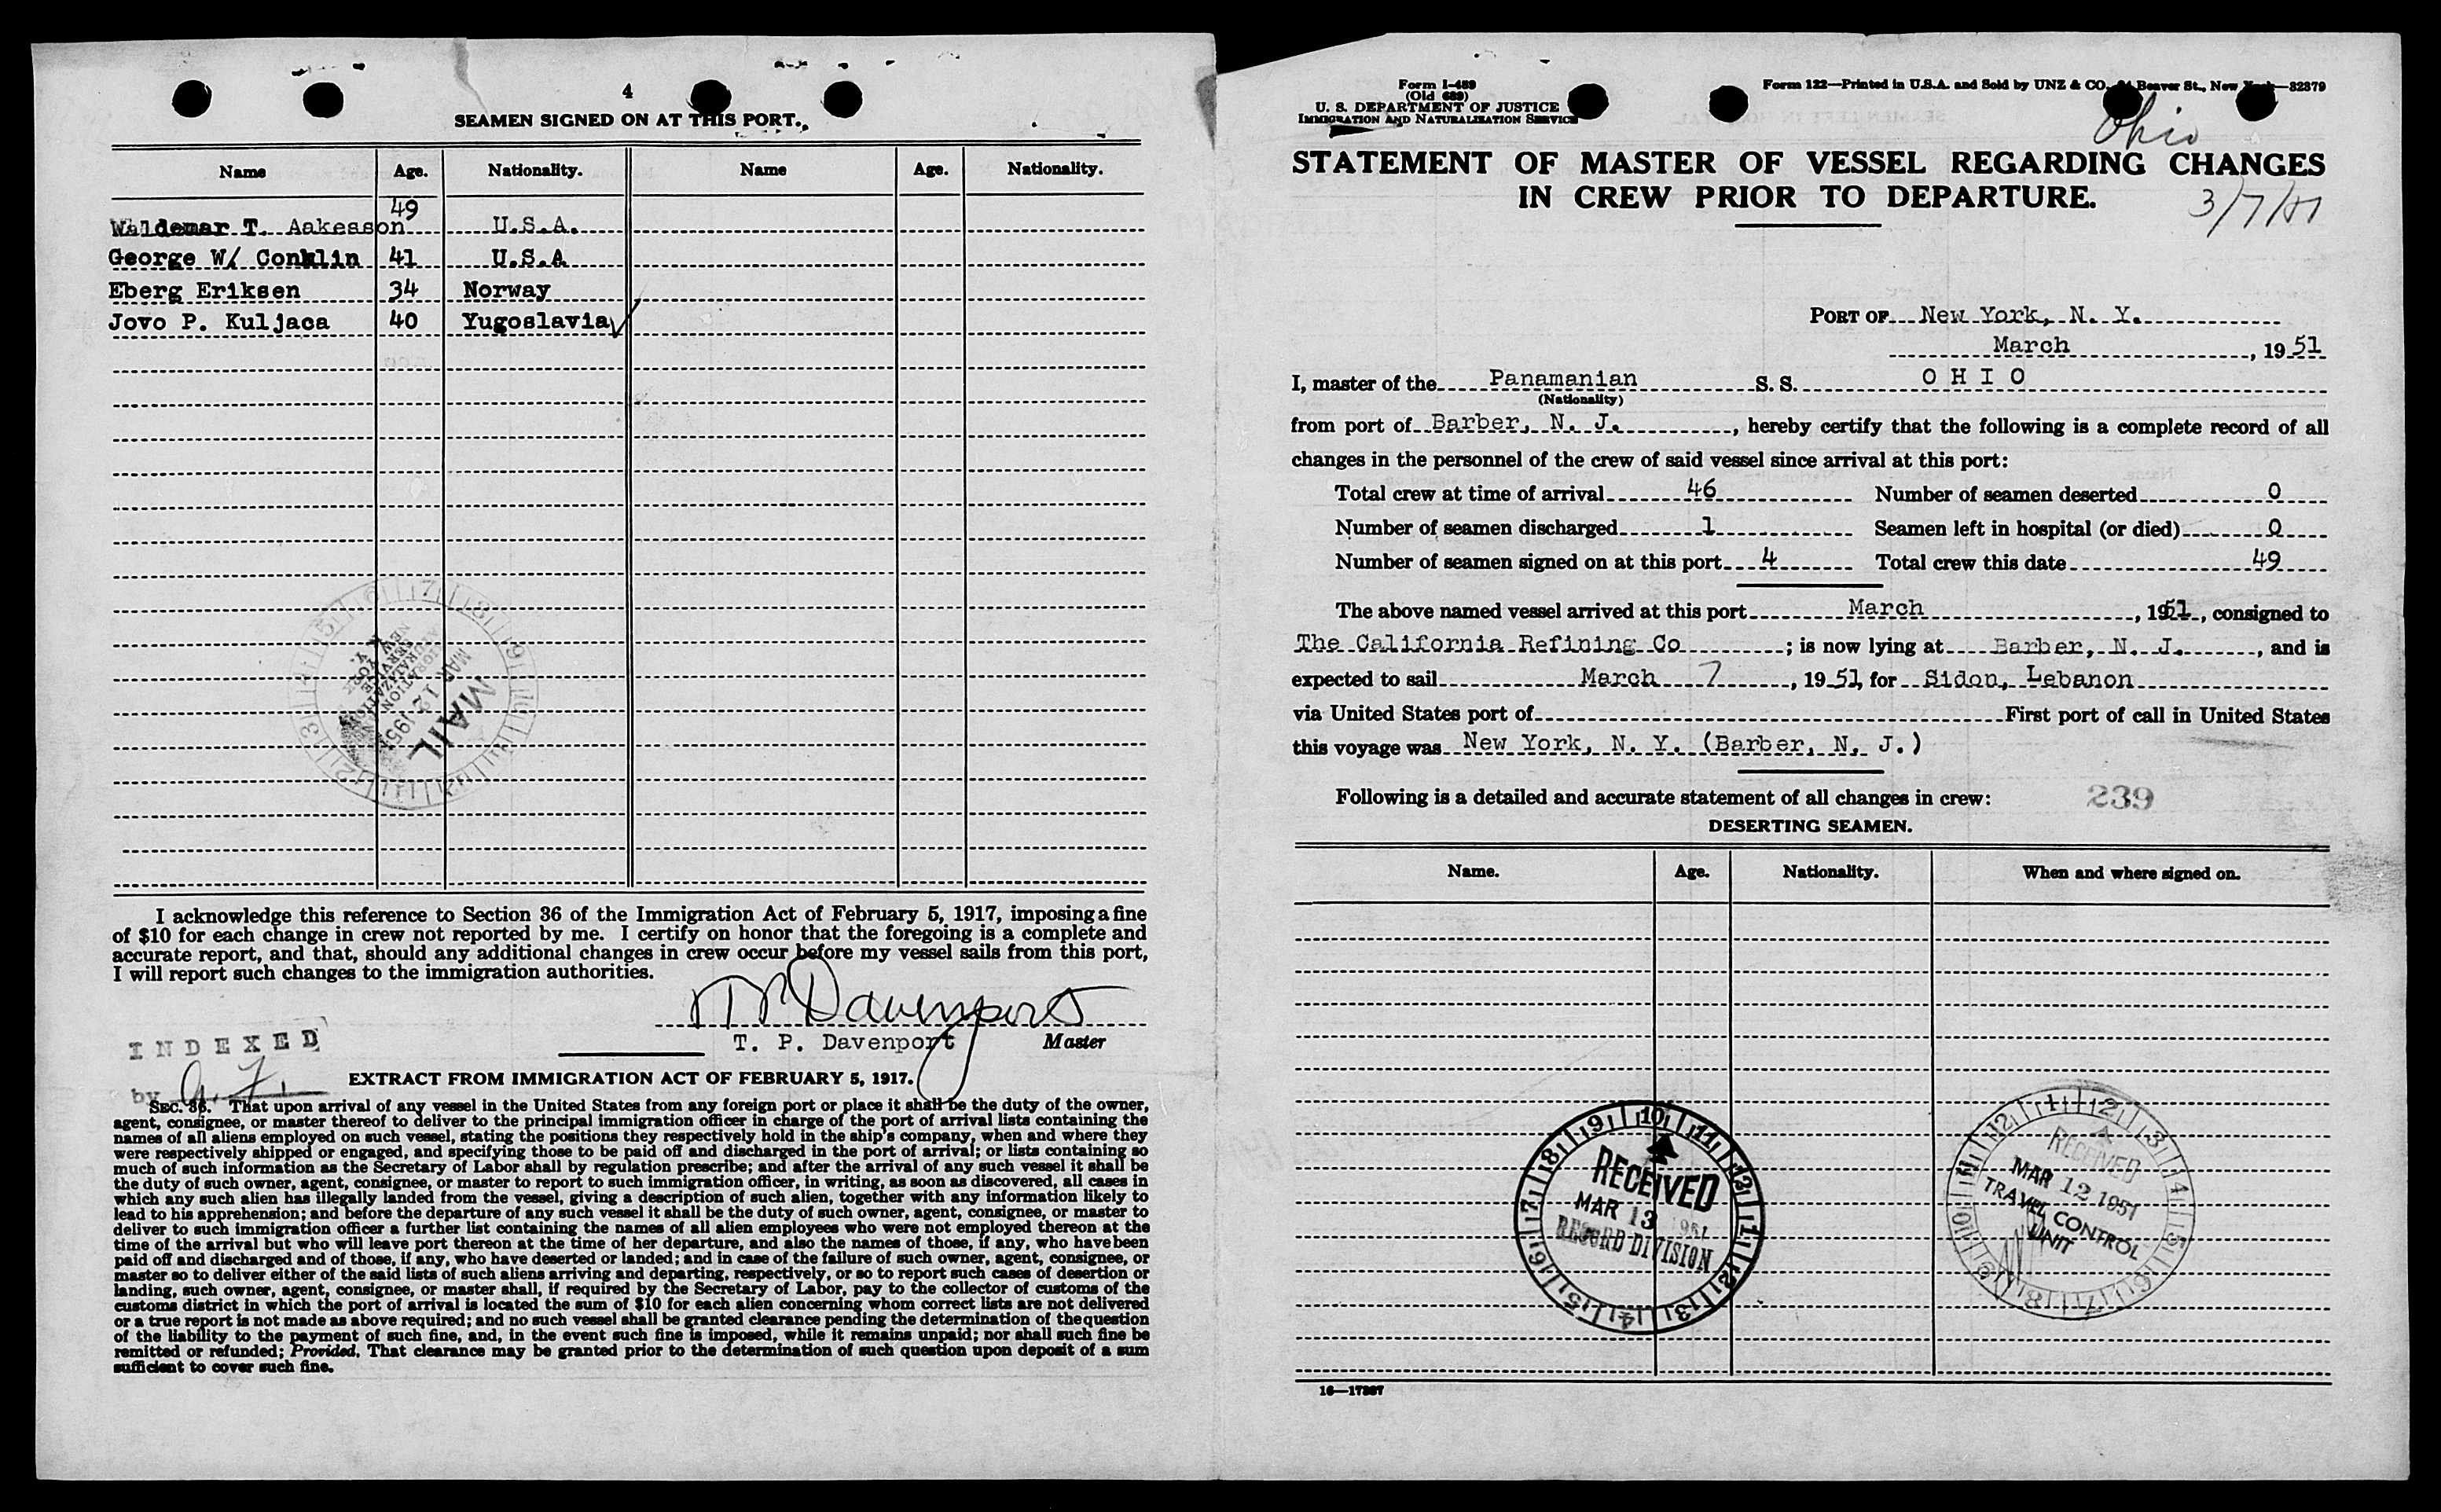 4
SEAMEN SIGNED ON AT THIS PORT.
Name Age. Nationality. Name Age. Nationality.
Waldemar T. Aakesson 49 U.S.A.
George W/ Conklin 41 U.S.A
Eberg Eriksen 34 Norway
Jovo P. Kuljaca 40 Yugoslavia
MAIL
MAR 12 1951
I acknowledge this reference to Section 36 of the Immigration Act of February 5, 1917, imposing a fine
of $10 for each change in crew not reported by me. I certify on honor that the foregoing is a complete and
accurate report, and that, should any additional changes in crew occur before my vessel sails from this port,
I will report such changes to the immigration authorities.
T P Davenport
T. P. Davenport Master
INDEXED
by
EXTRACT FROM IMMIGRATION ACT OF FEBRUARY 5, 1917.
SEC. 36. That upon arrival of any vessel in the United States from any foreign port or place it shall be the duty of the owner,
agent, consignee, or master thereof to deliver to the principal immigration officer in charge of the port of arrival lists containing the
names of all aliens employed on such vessel, stating the positions they respectively hold in the ship's company, when and where they
were respectively shipped or engaged, and specifying those to be paid off and discharged in the port of arrival; or lists containing so
much of such information as the Secretary of Labor shall by regulation prescribe; and after the arrival of any such vessel it shall be
the duty of such owner, agent, consignee, or master to report to such immigration officer, in writing, as soon as discovered, all cases in
which any such alien has illegally landed from the vessel, giving a description of such alien, together with any information likely to
lead to his apprehension; and before the departure of any such vessel it shall be the duty of such owner, agent, consignee, or master to
deliver to such immigration officer a further list containing the names of all alien employees who were not employed thereon at the
time of the arrival but who will leave port thereon at the time of her departure, and also the names of those, if any, who have been
paid off and discharged and of those, if any, who have deserted or landed; and in case of the failure of such owner, agent, consignee, or
master so to deliver either of the said lists of such aliens arriving and departing, respectively, or so to report such cases of desertion or
landing, such owner, agent, consignee, or master shall, if required by the Secretary of Labor, pay to the collector of customs of the
customs district in which the port of arrival is located the sum of $10 for each alien concerning whom correct lists are not delivered
or a true report is not made as above required; and no such vessel shall be granted clearance pending the determination of the question
of the liability to the payment of such fine, and, in the event such fine is imposed, while it remains unpaid; nor shall such fine be
remitted or refunded; Provided, That clearance may be granted prior to the determination of such question upon deposit of a sum
sufficient to cover such fine.
Form I-489
(Old 689)
U. S. DEPARTMENT OF JUSTICE
IMMIGRATION AND NATURALIZATION SERVICE
Form 122—Printed in U.S.A. and Sold by UNZ & CO. Beaver St., New —32379
Ohio
STATEMENT OF MASTER OF VESSEL REGARDING CHANGES
IN CREW PRIOR TO DEPARTURE.
3/7/51
PORT OF New York, N. Y.
March , 19 51
I, master of the Panamanian S. S. O H I O
(Nationality)
from port of Barber, N. J. , hereby certify that the following is a complete record of all
changes in the personnel of the crew of said vessel since arrival at this port:
Total crew at time of arrival 46 Number of seamen deserted 0
Number of seamen discharged 1 Seamen left in hospital (or died) 0
Number of seamen signed on at this port 4 Total crew this date 49
The above named vessel arrived at this port March , 1951 , consigned to
The California Refining Co ; is now lying at Barber, N. J. , and is
expected to sail March 7 , 19 51, for Sidon, Lebanon
via United States port of First port of call in United States
this voyage was New York, N. Y. (Barber, N. J.)
Following is a detailed and accurate statement of all changes in crew: 239
DESERTING SEAMEN.
Name. Age. Nationality. When and where signed on.
RECEIVED
MAR 13 1951
RECORD DIVISION
RECEIVED
MAR 12 1951
TRAVEL CONTROL
UNIT
16—17267